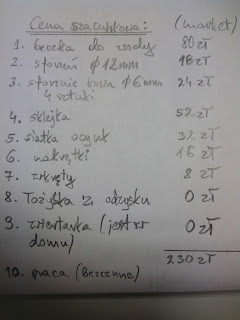 Cena szacunkowa: (market)
1. beczka do wody 80 zł
2. sworzeń φ12mm 18 zł
3. sworznie kosza φ6mm 24 zł
4 sztuki
4. sklejka 52 zł
5. siatka ocynk 32 zł
6. nakrętki 16 zł
7. wkręty 8 zł
8. Łożyska z odzysku 0 zł
9. wiertarka (jest w 0 zł
domu)
230 zł
10. praca (bezcenne)